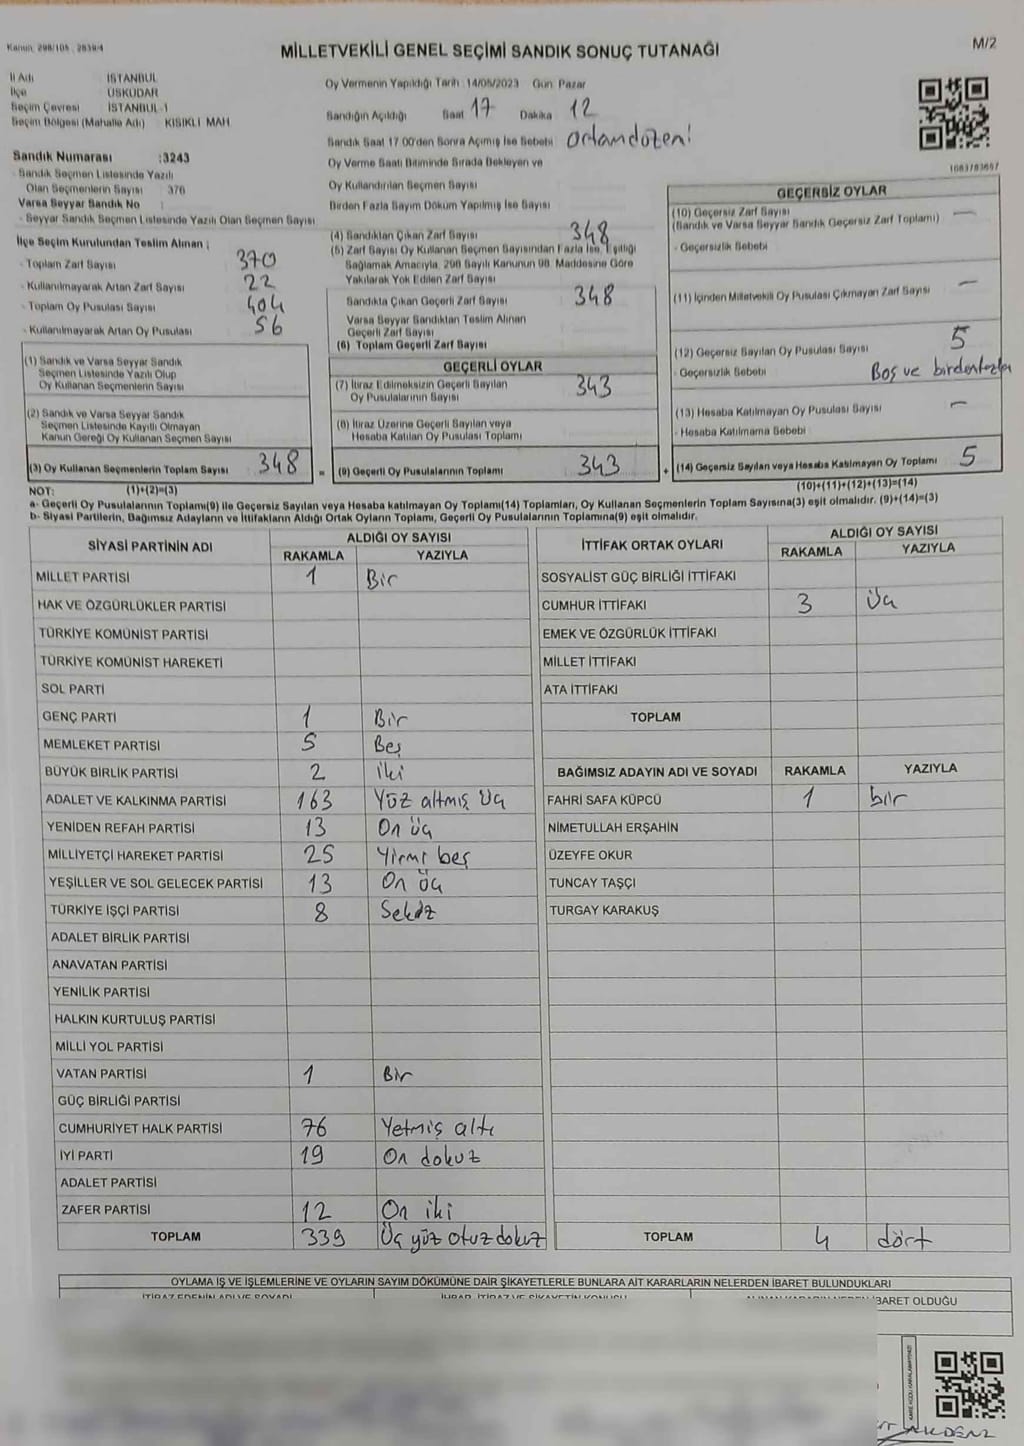 Kanun: 298/105 , 2839/4
MİLLETVEKİLİ GENEL SEÇİMİ SANDIK SONUÇ TUTANAĞI
M/2
İl Adı : İSTANBUL
İlçe : ÜSKÜDAR
Seçim Çevresi : İSTANBUL-1
Seçim Bölgesi (Mahalle Adı) : KISIKLI MAH.
Oy Vermenin Yapıldığı Tarih : 14/05/2023 Gün: Pazar
Sandığın Açıldığı Saat 17 Dakika 12
Sandık Saat 17.00'den Sonra Açımış İse Sebebi
Oy Verme Saati Bitiminde Sırada Bekleyen ve
Oy Kullandırılan Seçmen Sayısı
Birden Fazla Sayım Döküm Yapılmış İse Sayısı
Sandık Numarası :3243
- Sandık Seçmen Listesinde Yazılı
Olan Seçmenlerin Sayısı : 376
Varsa Seyyar Sandık No :
- Seyyar Sandık Seçmen Listesinde Yazılı Olan Seçmen Sayısı :
İlçe Seçim Kurulundan Teslim Alınan ;
- Toplam Zarf Sayısı 370
- Kullanılmayarak Artan Zarf Sayısı 22
- Toplam Oy Pusulası Sayısı 404
- Kullanılmayarak Artan Oy Pusulası 56
(1) Sandık ve Varsa Seyyar Sandık
Seçmen Listesinde Yazılı Olup
Oy Kullanan Seçmenlerin Sayısı
(2) Sandık ve Varsa Seyyar Sandık
Seçmen Listesinde Kayıtlı Olmayan
Kanun Gereği Oy Kullanan Seçmen Sayısı
(3) Oy Kullanan Seçmenlerin Toplam Sayısı 348 =
(4) Sandıktan Çıkan Zarf Sayısı 348
(5) Zarf Sayısı Oy Kullanan Seçmen Sayısından Fazla İse, Eşitliği
Sağlamak Amacıyla, 298 Sayılı Kanunun 98. Maddesine Göre
Yakılarak Yok Edilen Zarf Sayısı
Sandıkta Çıkan Geçerli Zarf Sayısı 348
Varsa Seyyar Sandıktan Teslim Alınan
Geçerli Zarf Sayısı
(6) Toplam Geçerli Zarf Sayısı
GEÇERLİ OYLAR
(7) İtiraz Edilmeksizin Geçerli Sayılan
Oy Pusulalarının Sayısı 343
(8) İtiraz Üzerine Geçerli Sayılan veya
Hesaba Katılan Oy Pusulası Toplamı
(9) Geçerli Oy Pusulalarının Toplamı 343 +
GEÇERSİZ OYLAR
(10) Geçersiz Zarf Sayısı —
(Sandık ve Varsa Seyyar Sandık Geçersiz Zarf Toplamı)
- Geçersizlik Sebebi
(11) İçinden Milletvekili Oy Pusulası Çıkmayan Zarf Sayısı —
(12) Geçersiz Sayılan Oy Pusulası Sayısı 5
- Geçersizlik Sebebi Boş ve birdenfazla
(13) Hesaba Katılmayan Oy Pusulası Sayısı —
- Hesaba Katılmama Sebebi
(14) Geçersiz Sayılan veya Hesaba Katılmayan Oy Toplamı 5
NOT: (1)+(2)=(3) (10)+(11)+(12)+(13)=(14)
a- Geçerli Oy Pusulalarının Toplamı(9) ile Geçersiz Sayılan veya Hesaba katılmayan Oy Toplamı(14) Toplamları, Oy Kullanan Seçmenlerin Toplam Sayısına(3) eşit olmalıdır. (9)+(14)=(3)
b- Siyasi Partilerin, Bağımsız Adayların ve İttifakların Aldığı Ortak Oyların Toplamı, Geçerli Oy Pusulalarının Toplamına(9) eşit olmalıdır.
SİYASİ PARTİNİN ADI ALDIĞI OY SAYISI
RAKAMLA YAZIYLA
MİLLET PARTİSİ 1 Bir
HAK VE ÖZGÜRLÜKLER PARTİSİ
TÜRKİYE KOMÜNİST PARTİSİ
TÜRKİYE KOMÜNİST HAREKETİ
SOL PARTİ
GENÇ PARTİ 1 Bir
MEMLEKET PARTİSİ 5 Beş
BÜYÜK BİRLİK PARTİSİ 2 iki
ADALET VE KALKINMA PARTİSİ 163 Yüz altmış üç
YENİDEN REFAH PARTİSİ 13 On üç
MİLLİYETÇİ HAREKET PARTİSİ 25 Yirmi beş
YEŞİLLER VE SOL GELECEK PARTİSİ 13 On üç
TÜRKİYE İŞÇİ PARTİSİ 8 Sekiz
ADALET BİRLİK PARTİSİ
ANAVATAN PARTİSİ
YENİLİK PARTİSİ
HALKIN KURTULUŞ PARTİSİ
MİLLİ YOL PARTİSİ
VATAN PARTİSİ 1 Bir
GÜÇ BİRLİĞİ PARTİSİ
CUMHURİYET HALK PARTİSİ 76 Yetmiş altı
İYİ PARTİ 19 On dokuz
ADALET PARTİSİ
ZAFER PARTİSİ 12 On iki
TOPLAM 339 Üç yüz otuz dokuz
İTTİFAK ORTAK OYLARI ALDIĞI OY SAYISI
RAKAMLA YAZIYLA
SOSYALİST GÜÇ BİRLİĞİ İTTİFAKI
CUMHUR İTTİFAKI 3 Üç
EMEK VE ÖZGÜRLÜK İTTİFAKI
MİLLET İTTİFAKI
ATA İTTİFAKI
TOPLAM
BAĞIMSIZ ADAYIN ADI VE SOYADI RAKAMLA YAZIYLA
FAHRİ SAFA KÜPCÜ 1 bir
NİMETULLAH ERŞAHİN
ÜZEYFE OKUR
TUNCAY TAŞÇI
TURGAY KARAKUŞ
TOPLAM 4 dört
OYLAMA İŞ VE İŞLEMLERİNE VE OYLARIN SAYIM DÖKÜMÜNE DAİR ŞİKAYETLERLE BUNLARA AİT KARARLARIN NELERDEN İBARET BULUNDUKLARI
İTİRAZ EDENİN ADI VE SOYADI İHBAR, İTİRAZ VE ŞİKAYETİN KONUSU İBARET OLDUĞU
AKDENİZ